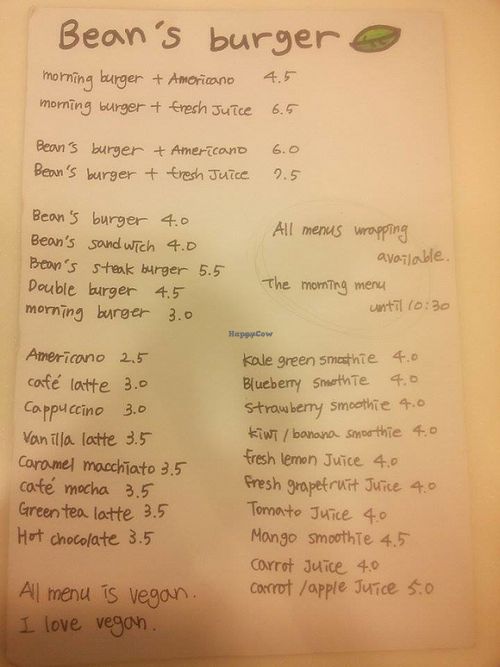 Bean's burger
morning burger + Americano 4.5
morning burger + fresh Juice 6.5
Bean's burger + Americano 6.0
Bean's burger + fresh Juice 7.5
Bean's burger 4.0
Bean's sandwich 4.0
Bean's steak burger 5.5
Double burger 4.5
morning burger 3.0
All menus wrapping
available.
The morning menu
until 10:30
HappyCow
Americano 2.5
café latte 3.0
Cappuccino 3.0
Vanilla latte 3.5
Caramel macchiato 3.5
café mocha 3.5
Green tea latte 3.5
Hot chocolate 3.5
Kale green smoothie 4.0
Blueberry smoothie 4.0
Strawberry smoothie 4.0
kiwi / banana smoothie 4.0
fresh lemon Juice 4.0
Fresh grapefruit Juice 4.0
Tomato Juice 4.0
Mango smoothie 4.5
carrot Juice 4.0
carrot / apple Juice 5.0
All menu is vegan.
I love vegan.